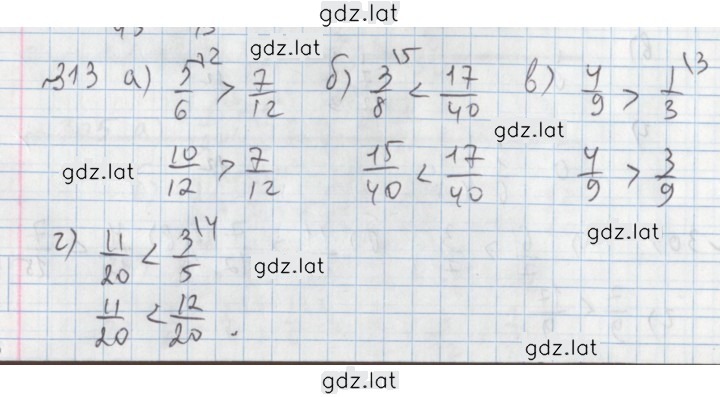 gdz.lat
gdz.lat
№313 а) 5/6 \2 > 7/12 б) 3/8 \5 < 17/40 в) 4/9 > 1/3 \3
gdz.lat
gdz.lat 10/12 > 7/12 15/40 < 17/40 4/9 > 3/9
gdz.lat
г) 11/20 < 3/5 \4
gdz.lat
11/20 < 12/20.
gdz.lat
gdz.lat